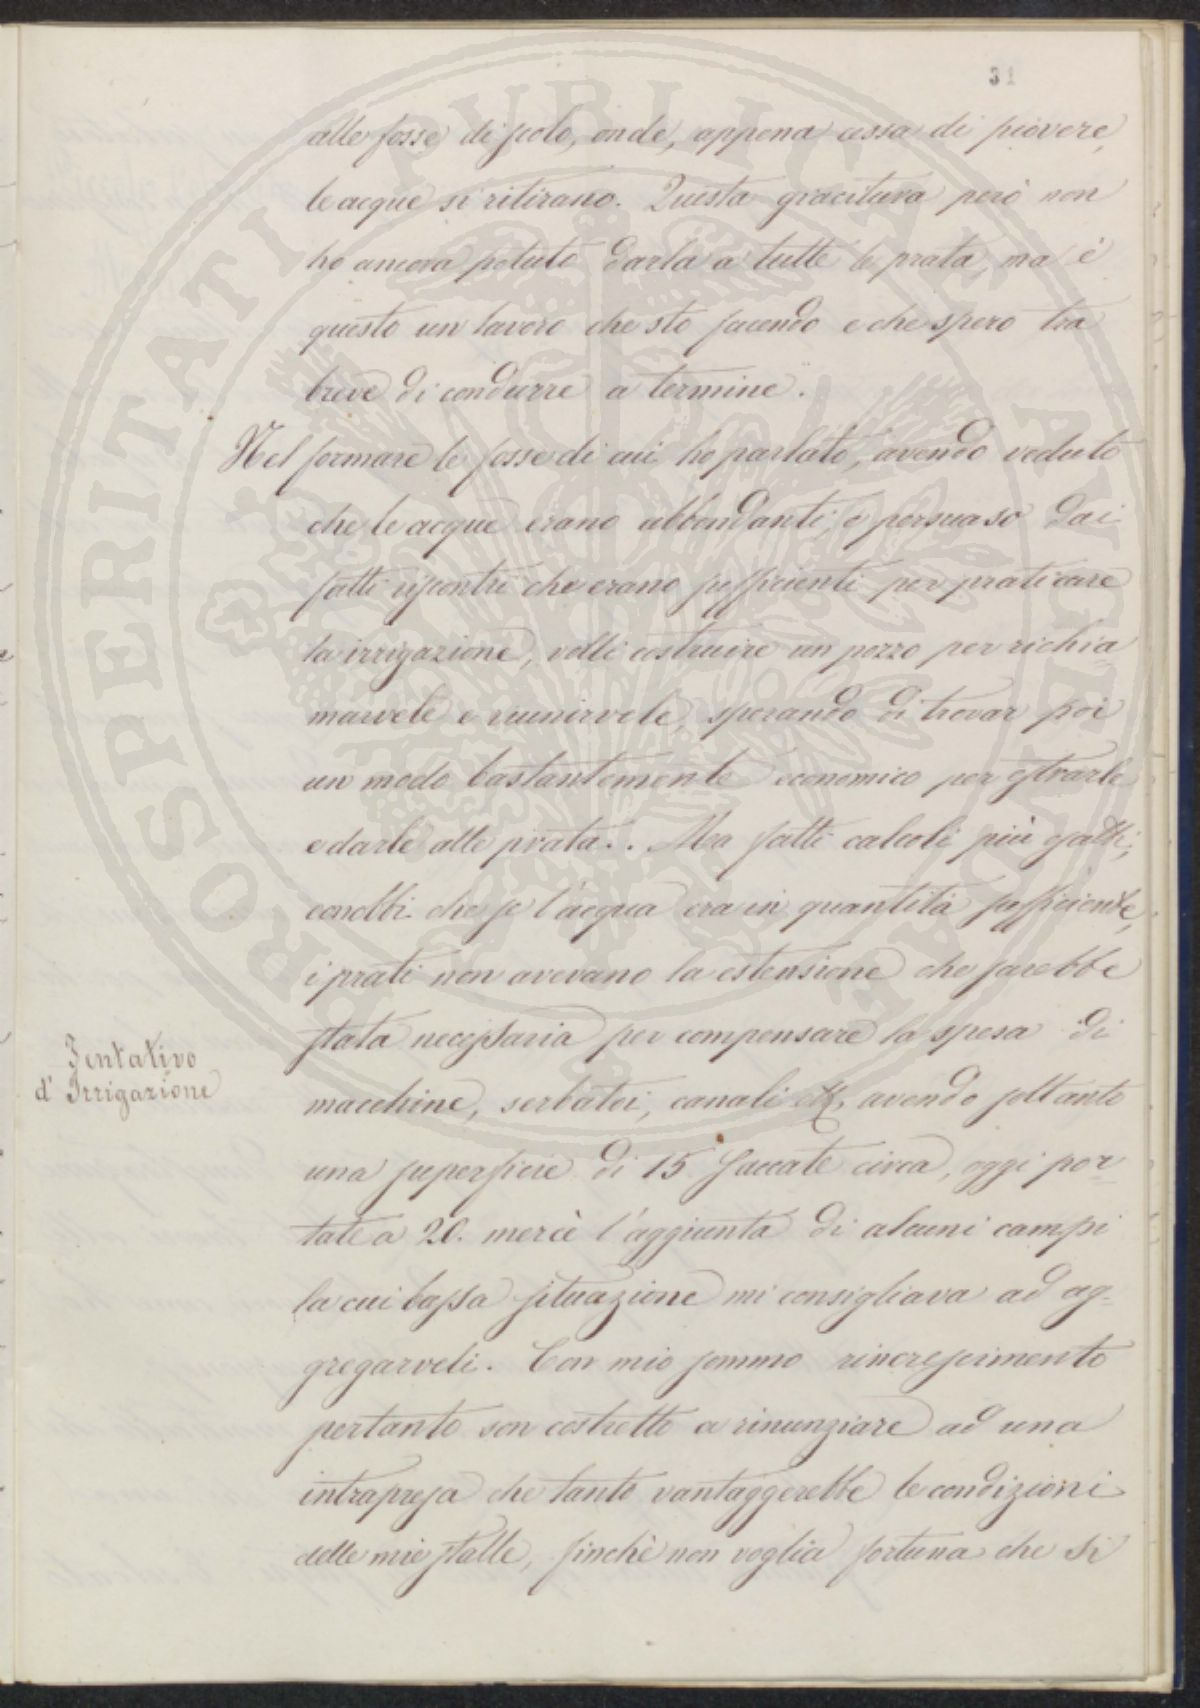 31
alle fosse di scolo, onde, appena cessa di piovere,
le acque si ritirano. Questa giacitura però non
ho ancora potuto darla a tutte le prata, ma è
questo un lavoro che sto facendo e che spero tra
breve di condurre a termine.
Nel formare le fosse di cui ho parlato, avendo veduto
che le acque erano abbondanti, e persuaso dai
fatti riscontri che erano sufficienti per praticare
la irrigazione, volli costruire un pozzo per richia
marvele e riunirvele, sperando di trovar poi
un modo bastantemente economico per estrarle
e darle alle prata. Ma fatti calcoli più esatti,
conobbi che se l'acqua era in quantità sufficiente,
i prati non avevano la estensione che sarebbe
stata necessaria per compensare la spesa di
Tentativo
d' Irrigazione
macchine, serbatoi, canali &, avendo soltanto
una superficie di 15 saccate circa, oggi por-
tate a 20. mercè l'aggiunta di alcuni campi
la cui bassa situazione mi consigliava ad ag-
gregarveli. Con mio sommo rincrescimento
pertanto son costretto a rinunziare ad una
intrapresa che tanto vantaggerebbe le condizioni
delle mie stalle, finchè non voglia fortuna che si
PROSPERITATI PUBLICAE AUGENDAE